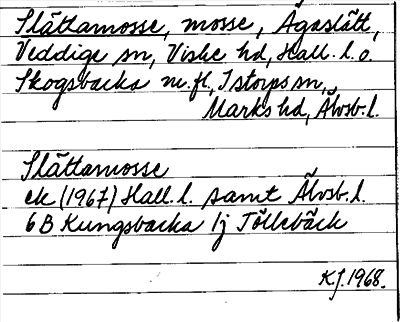 Slättamosse, mosse, Ågaslätt,
Veddige sn, Viske hd, Hall. l. o.
Skogsbacka m. fl, Istorps sn,
Marks hd, Älvsb. l.
Slättamosse
ek (1967) Hall. l. samt Älvsb. l.
6 B Kungsbacka 1j Töllebäck
KJ. 1968.